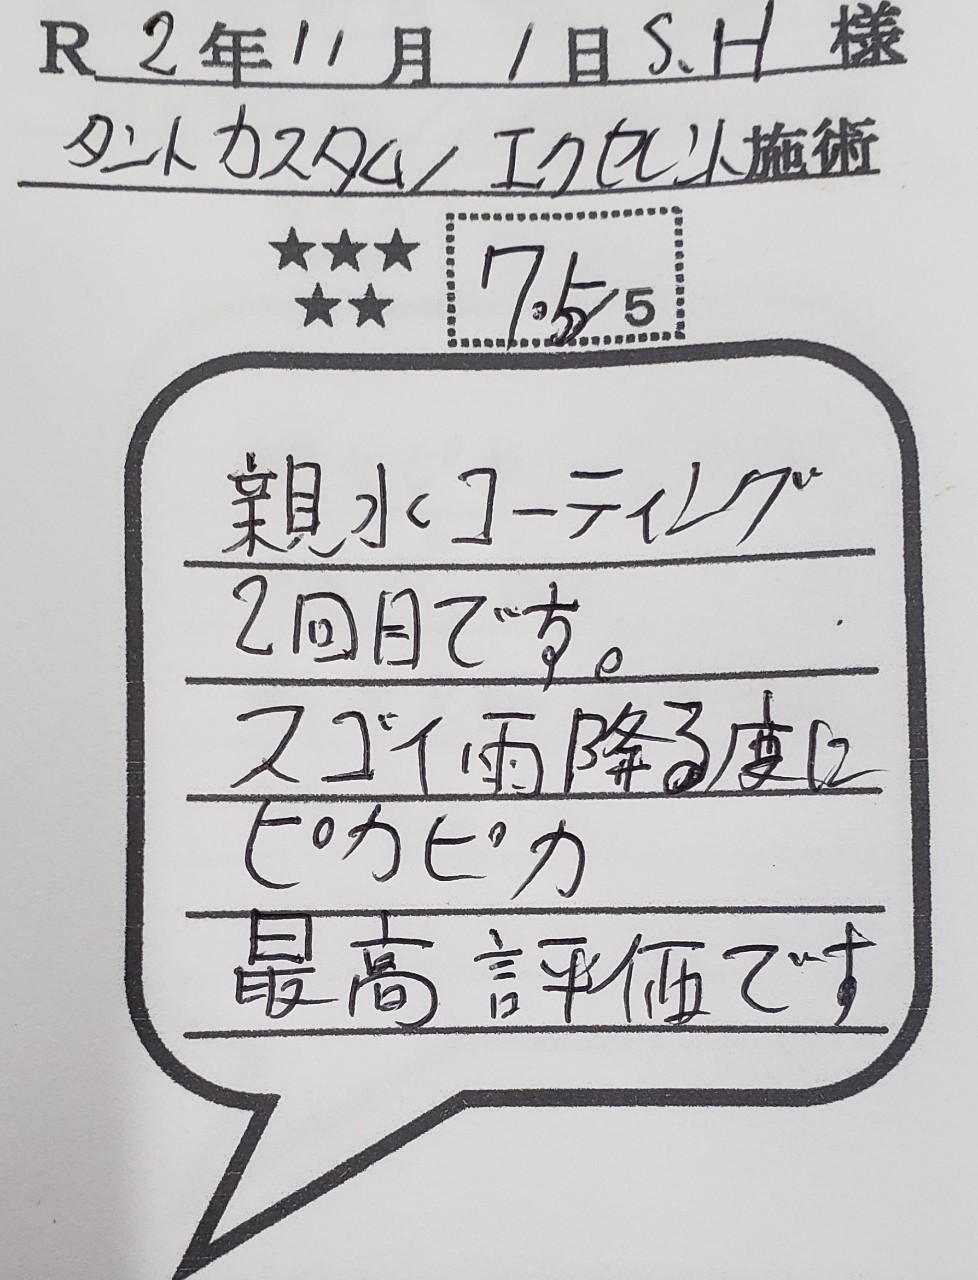 R 2年11月1日 S.H 様
タントカスタム/エクセレント施術
★★★
★★
7.5/5
親水コーティング
2回目です。
スゴイ雨降る度に
ピカピカ
最高評価です